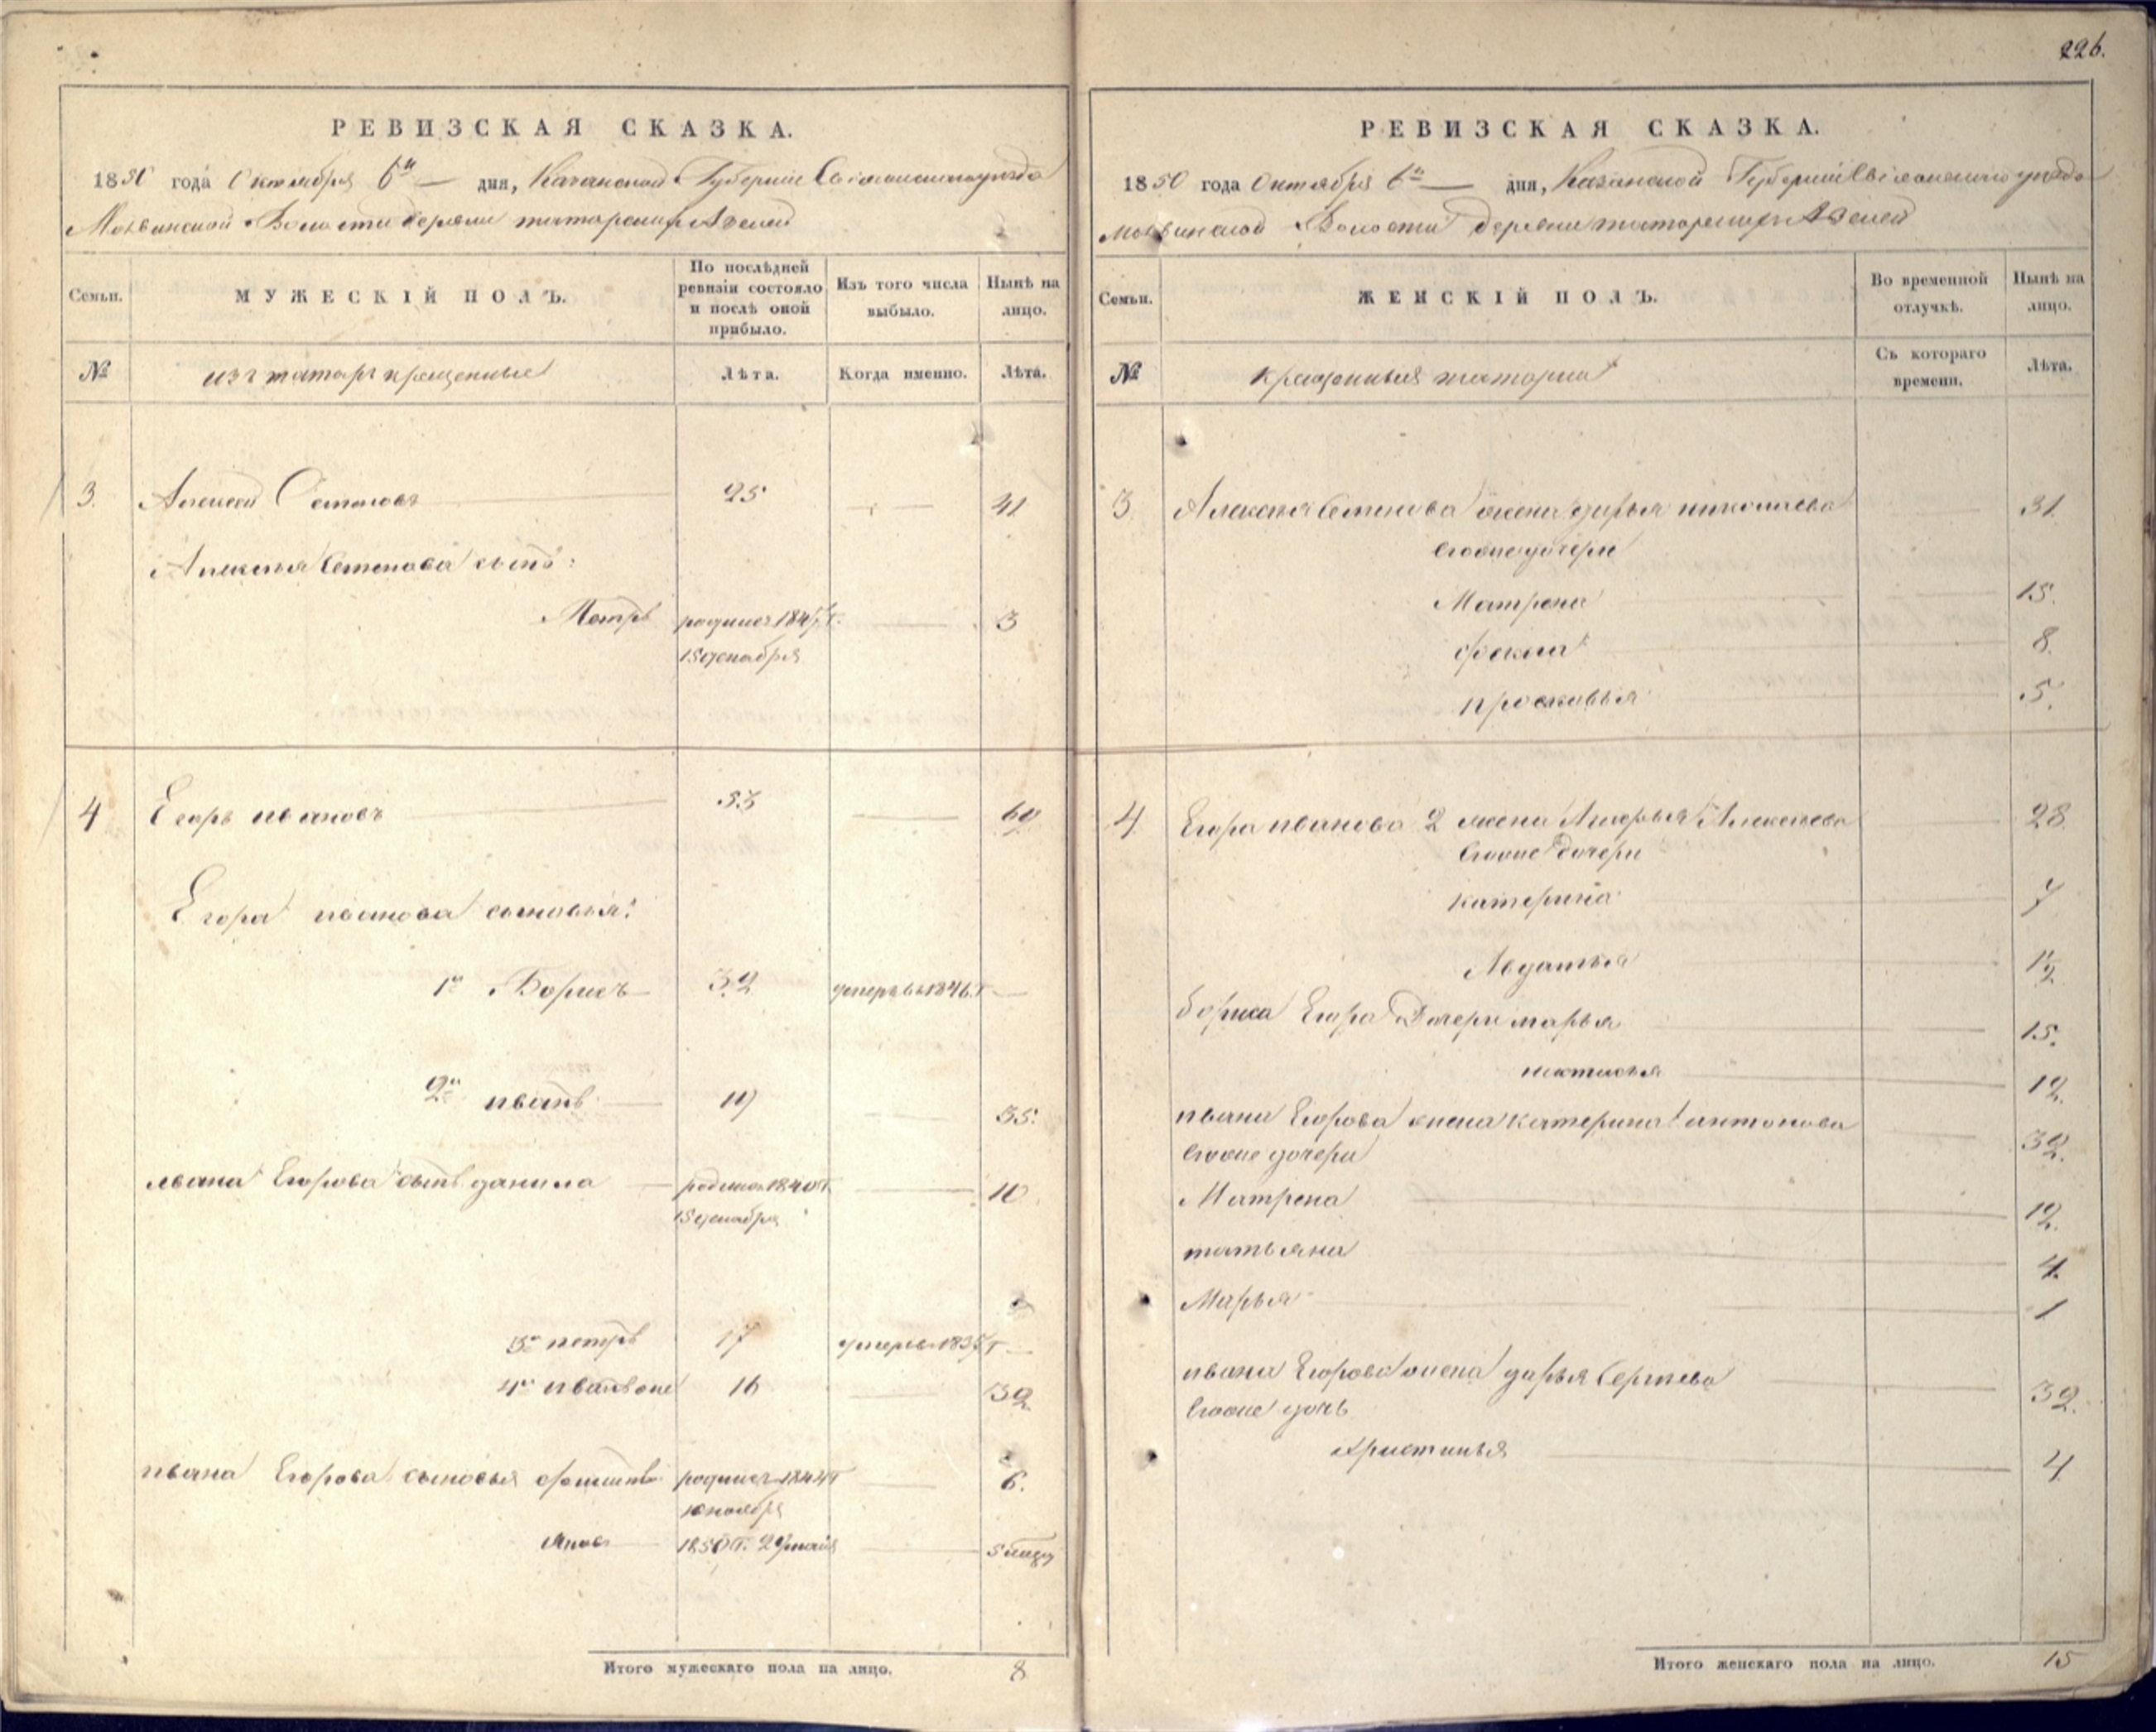 226.
РЕВИЗСКАЯ СКАЗКА.
1850 года Октября 6го дня, Казанской Губернии Свіяжскаго уѣзда
Волости деревни татарских Азелей
Семьи.
МУЖЕСКІЙ ПОЛЪ.
По послѣдней ревизіи состояло и послѣ оной прибыло.
Изъ того числа выбыло.
Нынѣ на лицо.
№
изъ татаръ крещенные
Лѣта.
Когда именно.
Лѣта.
3. Алексей Семеновъ 25 41
Алексея Семенова сынъ:
Петръ родился 1847 г. 3
15 декабря
4 Егоръ ивановъ 53
Егора иванова сыновья:
1й Борисъ 32 умеръ въ 1846 г
2й иванъ 19 35.
ивана Егорова сынъ данила родился 1840 г. 10
15 декабря
3й петръ 17 умеръ в 1835 г
4й иванъ 16 32.
ивана Егорова сыновья родился 1844 г 6.
ноября
Яковъ 1850 г. 29 маія
Итого мужескаго пола на лицо. 8
РЕВИЗСКАЯ СКАЗКА.
1850 года Октября 6го дня, Казанской Губерніи Свіяжскаго уѣзда
Волости деревни татарских Азелей
Семьи.
ЖЕНСКІЙ ПОЛЪ.
Во временной отлучкѣ.
Нынѣ на лицо.
№
крещенныя татарки
Съ котораго времени.
Лѣта.
3 Алексея Семенова жена дарья николаева 31.
Его оне дочери
Матрена 15.
Фекла 8.
Просковья 5.
4. Егора иванова 2 жена Алексеева 28.
Его оне дочери
катерина 7
Авдотья 1½
бориса Егора Дочери марья 15.
настасья 12.
ивана Егорова жена катерина антонова 32.
Его оне дочери
Матрена 12.
татьяна 4.
Марья 1
ивана Егорова жена дарья Сергеева 32.
Его оне дочь
Христинья 4
Итого женскаго пола на лицо. 15